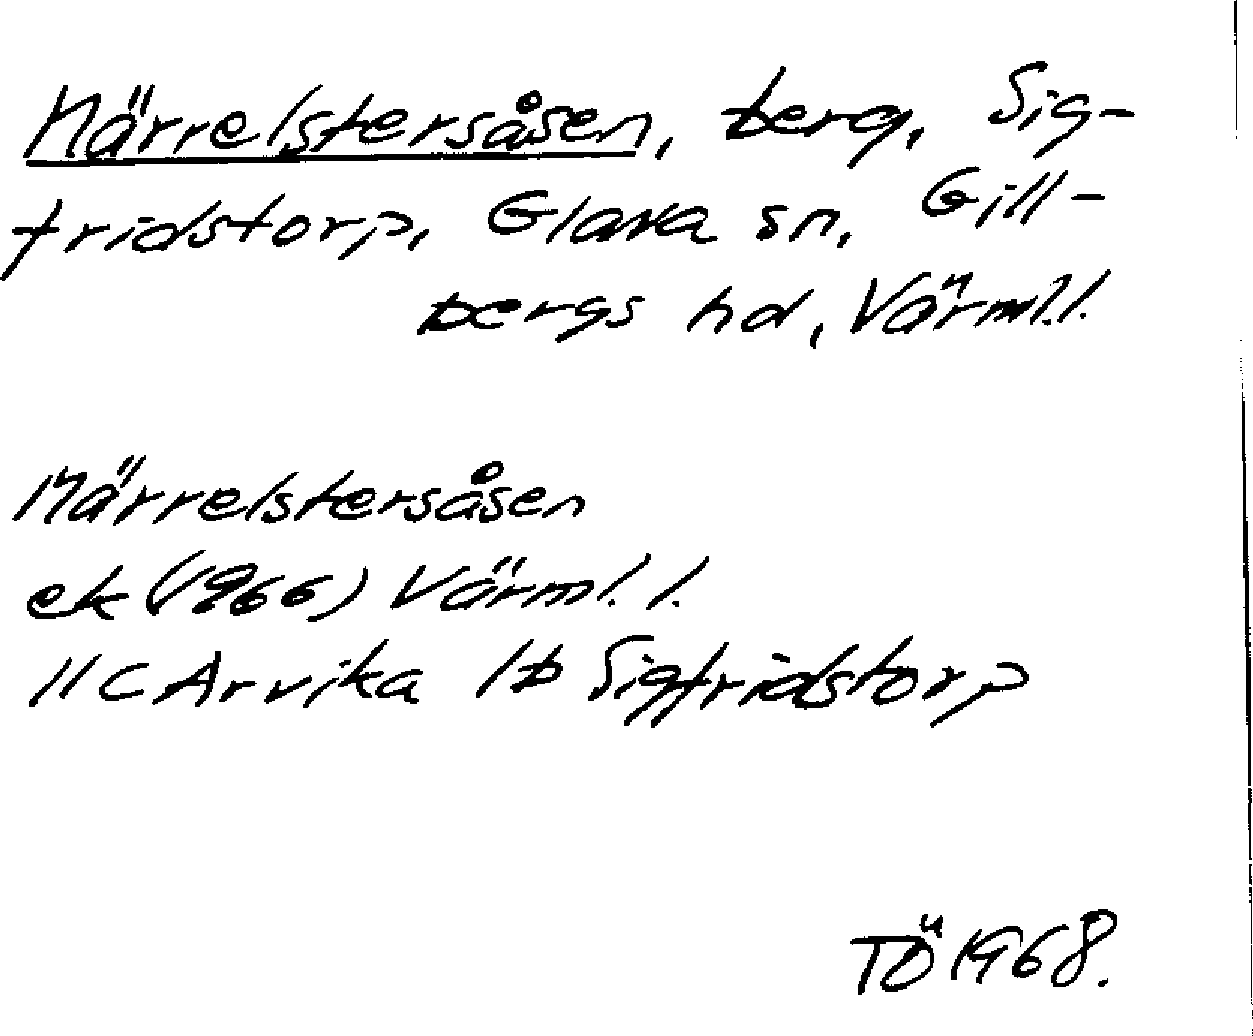 Närrelstersåsen, berg, Sig-
fridstorp, Glava sn, Gill-
bergs hd, Värml. l.
Närrelstersåsen
ek (1966) Värml. l.
11C Arvika 1b Sigfridstorp
TÖ 1968.